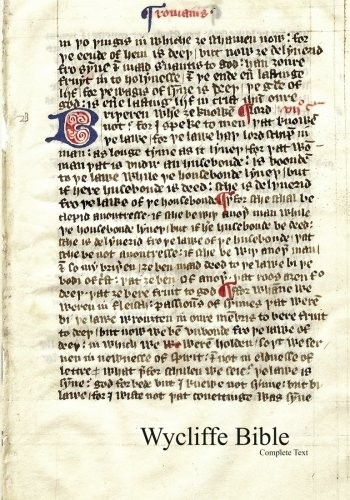 Romans
in þo þingis in whiche ȝe schamen now / for
þe eende of hem is deeþ / but now ȝe delyuerid
fro synne ⁊ maad seruauntis to god / han ȝoure
fruyt in to holynesse / ⁊ þe ende euerlastinge
lijf / for þe wagis of synne is deeþ / þe grace of
god / is euerlastinge lijf in crist ihū oure
lord
Briþeren wher ȝe knowen
not / for I speke to men þat knowen
þe lawe / for þe lawe haþ lordschip in
man / as longe tyme as it lyueþ / for þat wo-
man þat is vndir an husebonde / is bounde
to þe lawe while þe housebonde lyueþ / but
if hire husebonde is deed / sche is delyuerid
fro þe lawe of þe housebonde / þerfor sche schal be
clepid auoutresse / if sche be wiþ anoþer man while
þe housebonde lyueþ / but if hir housebonde be deed /
sche is delyuerid fro þe lawe of þe husebonde / þat
sche be not auoutresse / if sche be wiþ anoþer man /
⁊ so my briþeren ȝe ben maad deed to þe lawe bi þe
bodi of crist / þat ȝe ben of anoþer / þat roos aȝen fro
deeþ / þat ȝe bere fruit to god / for whanne we
weren in fleisch / passiouns of synnes þat weren
bi þe lawe wrouȝten in oure membris to bere fruit
to deeþ / but now we ben vnbounde fro þe lawe of
deeþ / in which we weren holden / so þat we ser-
uen in newnesse of spirit / ⁊ not in eldnesse of
lettre / what þerfor schulen we seie / þe lawe is
synne / god forbede / but I knewe not synne / but bi
lawe / for I wiste not þat coueitinge was synne
Wycliffe Bible
Complete Text